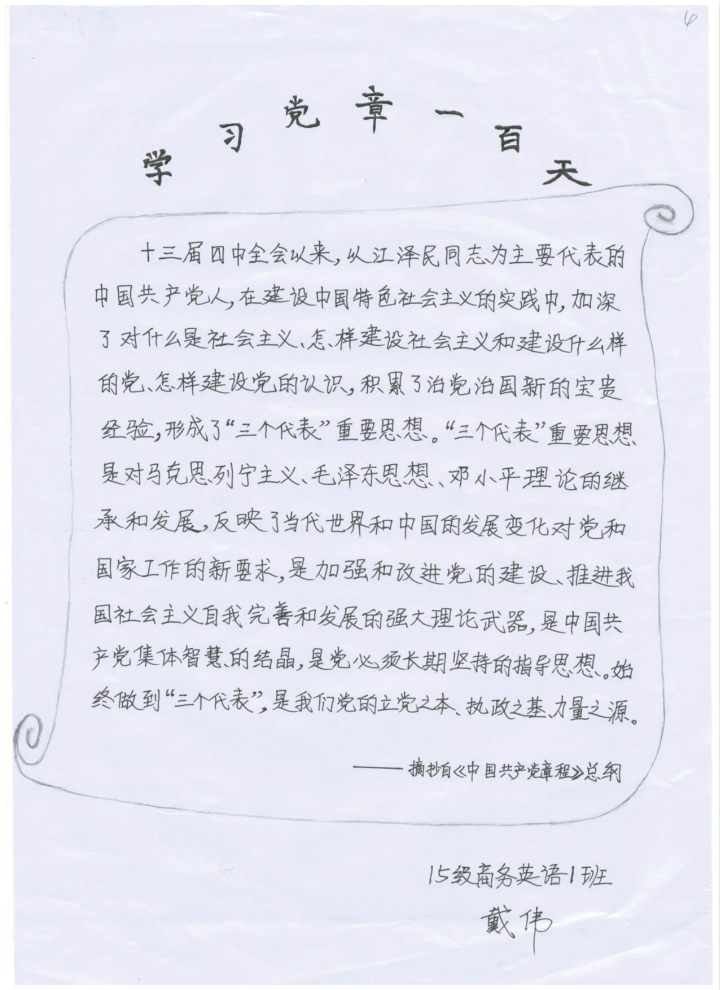 学习党章一百天
十三届四中全会以来,从江泽民同志为主要代表的
中国共产党人,在建设中国特色社会主义的实践中,加深
了对什么是社会主义、怎样建设社会主义和建设什么样
的党、怎样建设党的认识,积累了治党治国新的宝贵
经验,形成了“三个代表”重要思想。“三个代表”重要思想
是对马克思列宁主义、毛泽东思想、邓小平理论的继
承和发展,反映了当代世界和中国的发展变化对党和
国家工作的新要求,是加强和改进党的建设、推进我
国社会主义自我完善和发展的强大理论武器,是中国共
产党集体智慧的结晶,是党必须长期坚持的指导思想。始
终做到“三个代表”,是我们党的立党之本、执政之基、力量之源。
——摘抄自《中国共产党章程》总纲
15级商务英语1班
戴伟